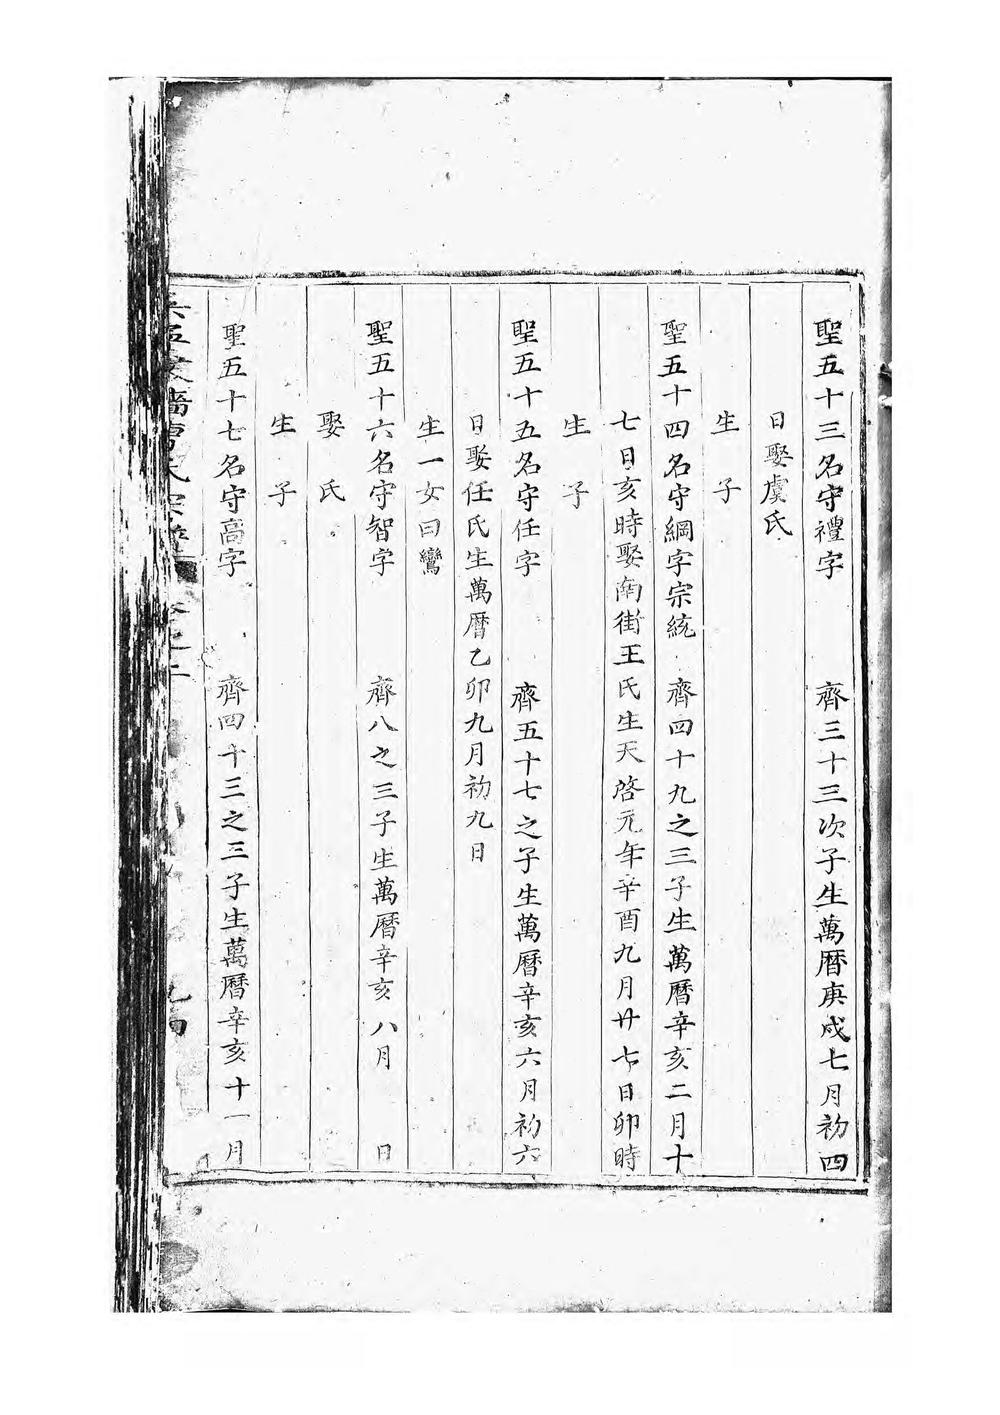 聖五十三名守禮字　齊三十三次子生萬曆庚戌七月初四
日娶虞氏
生　子
聖五十四名守綱字宗統　齊四十九之三子生萬曆辛亥二月十
七日亥時娶南街王氏生天啓元年辛酉九月廿七日卯時
生　子
聖五十五名守任字　齊五十七之子生萬曆辛亥六月初六
日娶任氏生萬曆乙卯九月初九日
生一女曰鸞
聖五十六名守智字　齊八之三子生萬曆辛亥八月　日
娶　氏
生　子
聖五十七名守高字　齊四十三之三子生萬曆辛亥十一月